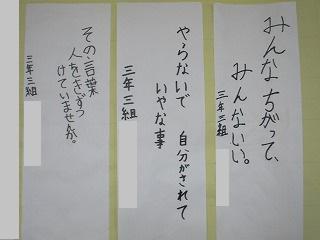 みんなちがって、
みんないい。
三年三組
やらないで 自分がされて
いやな事
三年三組
その言葉
人をきずつ
けていませんか。
三年三組